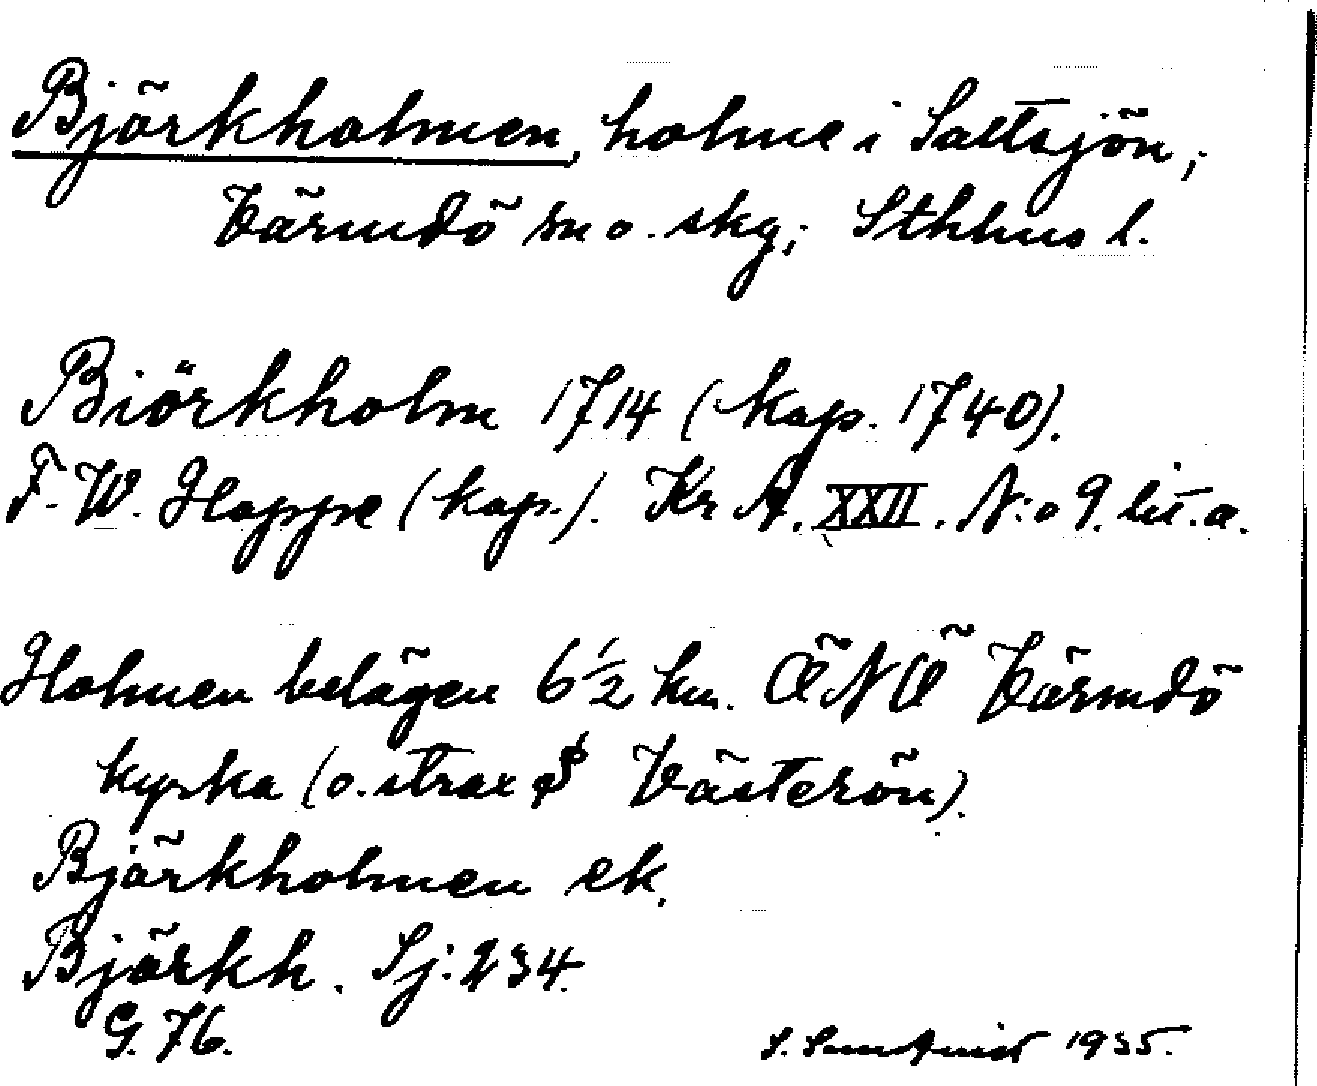 Björkholmen, holme i Saltsjön,
Värmdö sn o. skg; Sthlms l.
Biörkholm 1714 (kop. 1740).
F. W. Hoppe (kop.). KrA. XXII. N:o 9. lit. a.
Holmen belägen 6 1/2 km. ÖNÖ Värmdö
kyrka (o. strax S Västerön).
Björkholmen ek.
Björkh. Sj: 234.
G. 76.
S. 1935.